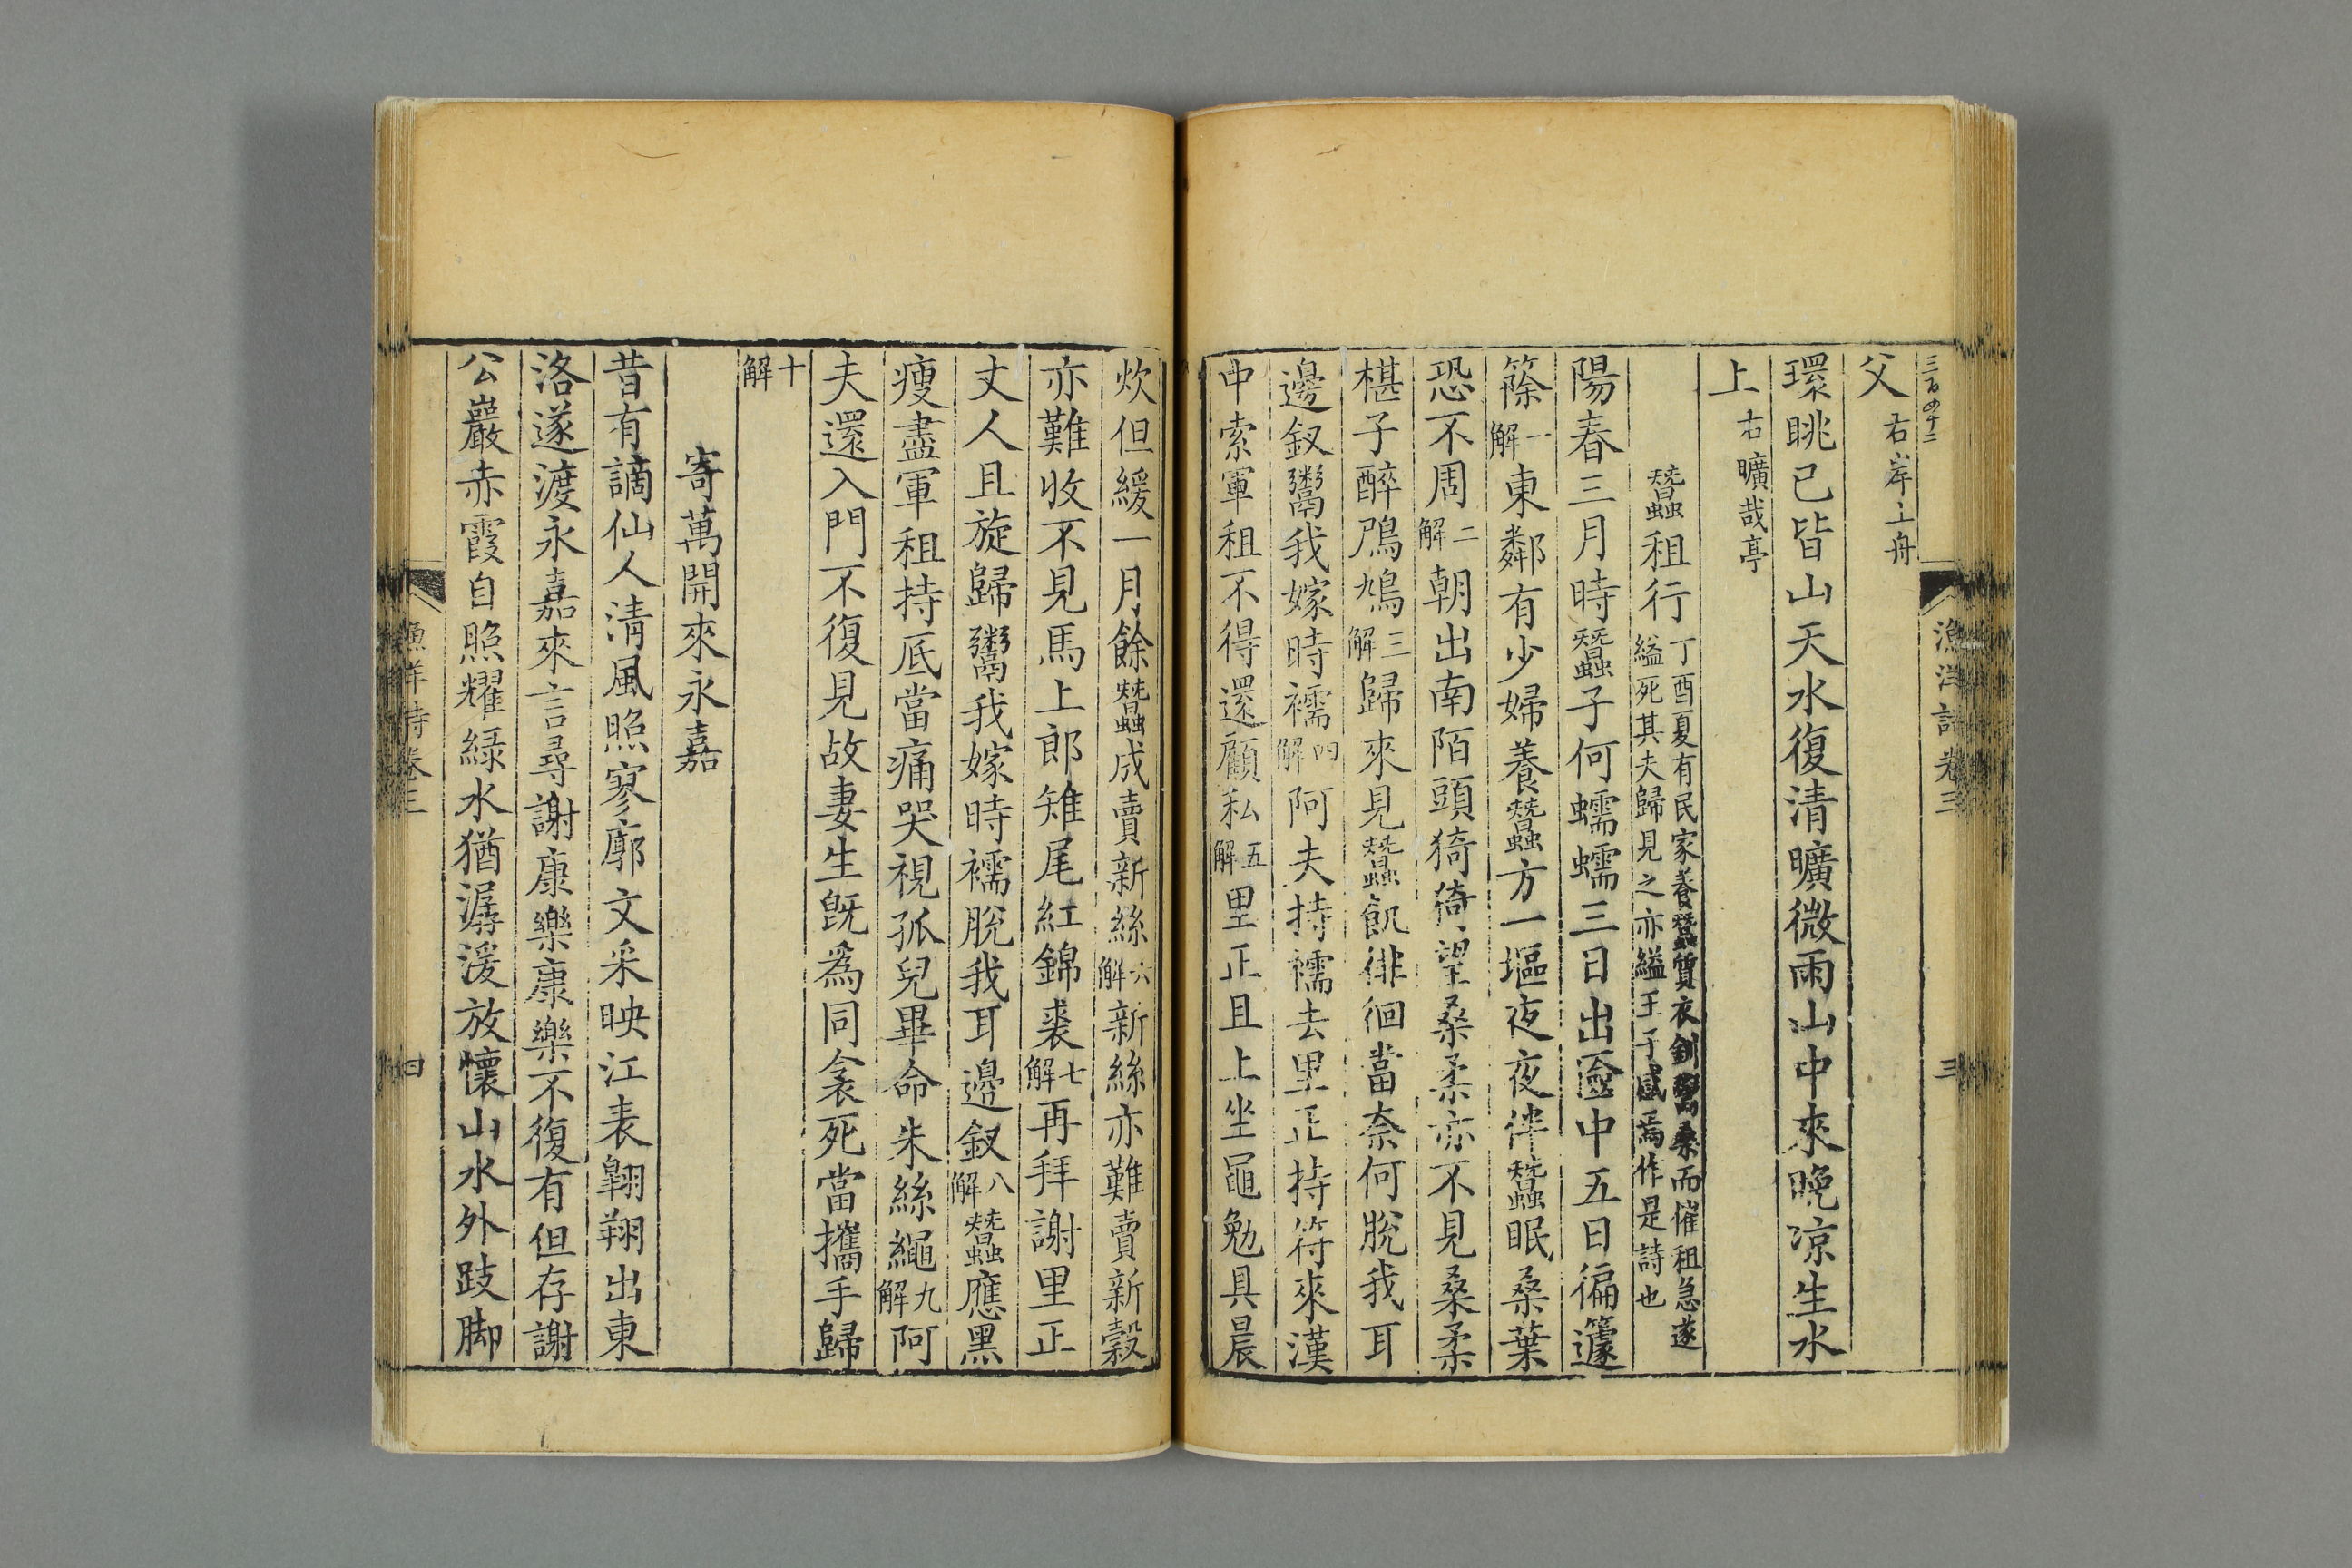 三百四十二
漁洋詩卷三
三
父右岸上舟
環眺已皆山天水復清曠微雨山中來晚凉生水
上右曠哉亭
蠶租行丁酉夏有民家養蠶質衣釧鬻桑而催租急遂縊死其夫歸見之亦縊王子感焉作是詩也
陽春三月時蠶子何蠕蠕三日出匳中五日徧籧
篨一解東鄰有少婦養蠶方一塸夜夜伴蠶眠桑葉
恐不周二解朝出南陌頭猗猗望桑柔亦不見桑柔
椹子醉鳲鳩三解歸來見蠶飢徘徊當奈何脫我耳
邊釵鬻我嫁時襦四解阿夫持襦去里正持符來漢
中索軍租不得還顧私五解里正且上坐黽勉具晨
炊但緩一月餘蠶成賣新絲六解新絲亦難賣新穀
亦難收不見馬上郎雉尾紅錦裘七解再拜謝里正
丈人且旋歸鬻我嫁時襦脫我耳邊釵八解蠶應黑
瘦盡軍租持底當痛哭視孤兒畢命朱絲繩九解阿
夫還入門不復見故妻生旣爲同衾死當攜手歸
十解
寄萬開來永嘉
昔有謫仙人清風照寥廓文采映江表翺翔出東
洛遂渡永嘉來言尋謝康樂康樂不復有但存謝
公巖赤霞自照耀綠水猶潺湲放懷山水外跂脚
漁洋詩卷三
四